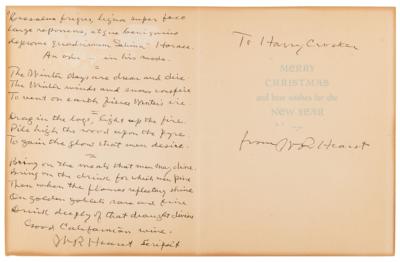 "Dissolve frigus, ligna super foco
Large reponens, atque benignius
deprome quadrimum Sabina" Horace.
An ode — in his mode.
The Winter days are drear and dire
The Winter winds and snows conspire
To vent on earth fierce Winter's ire.
Drag in the logs, light up the fire.
Pile high the wood upon the pyre
To gain the glow that men desire.
Bring on the meats that men may dine
Bring on the drink for which men pine
Then when the flames reflecting shine
On golden goblets rare and fine
Drink deeply of that draught divine
Good Californian wine.
WR Hearst Scripsit
To Harry Crocker
MERRY
CHRISTMAS
and best wishes for the
NEW YEAR
from WR Hearst